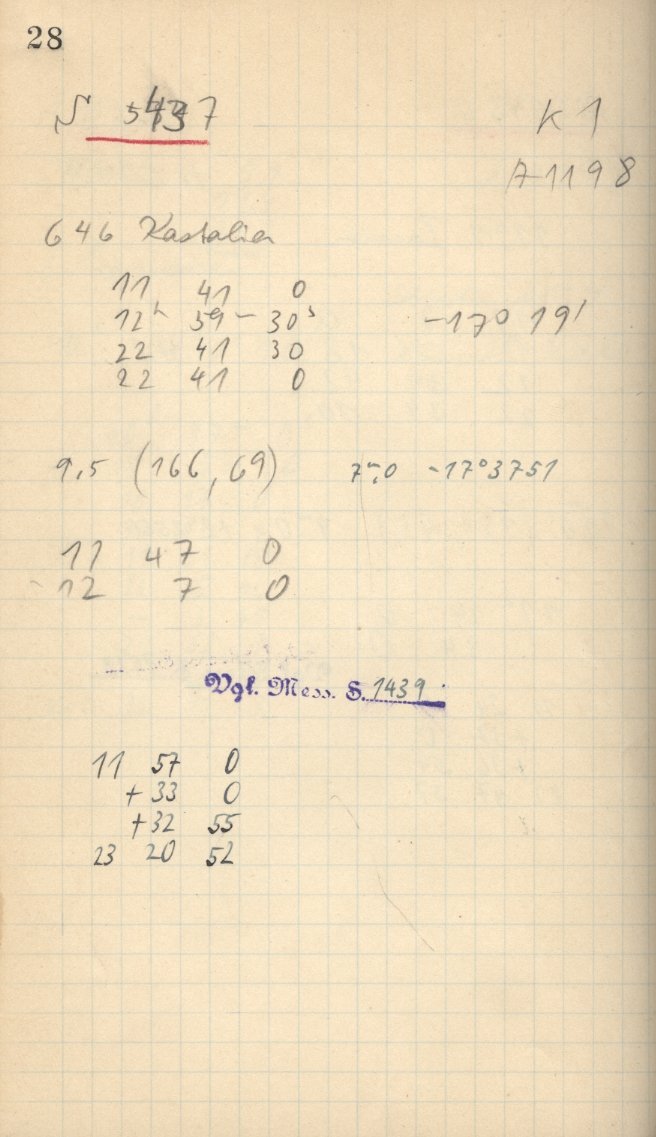 28
K 1
A 1198
646 Kastalia
11 41 0
12h 59m 30s -17° 19'
22 41 30
22 41 0
9,5 (166, 69) 7m,0 -17°3751
11 47 0
12 7 0
Vgl. Mess. S. 1439
11 57 0
+ 33 0
+ 32 55
23 20 52